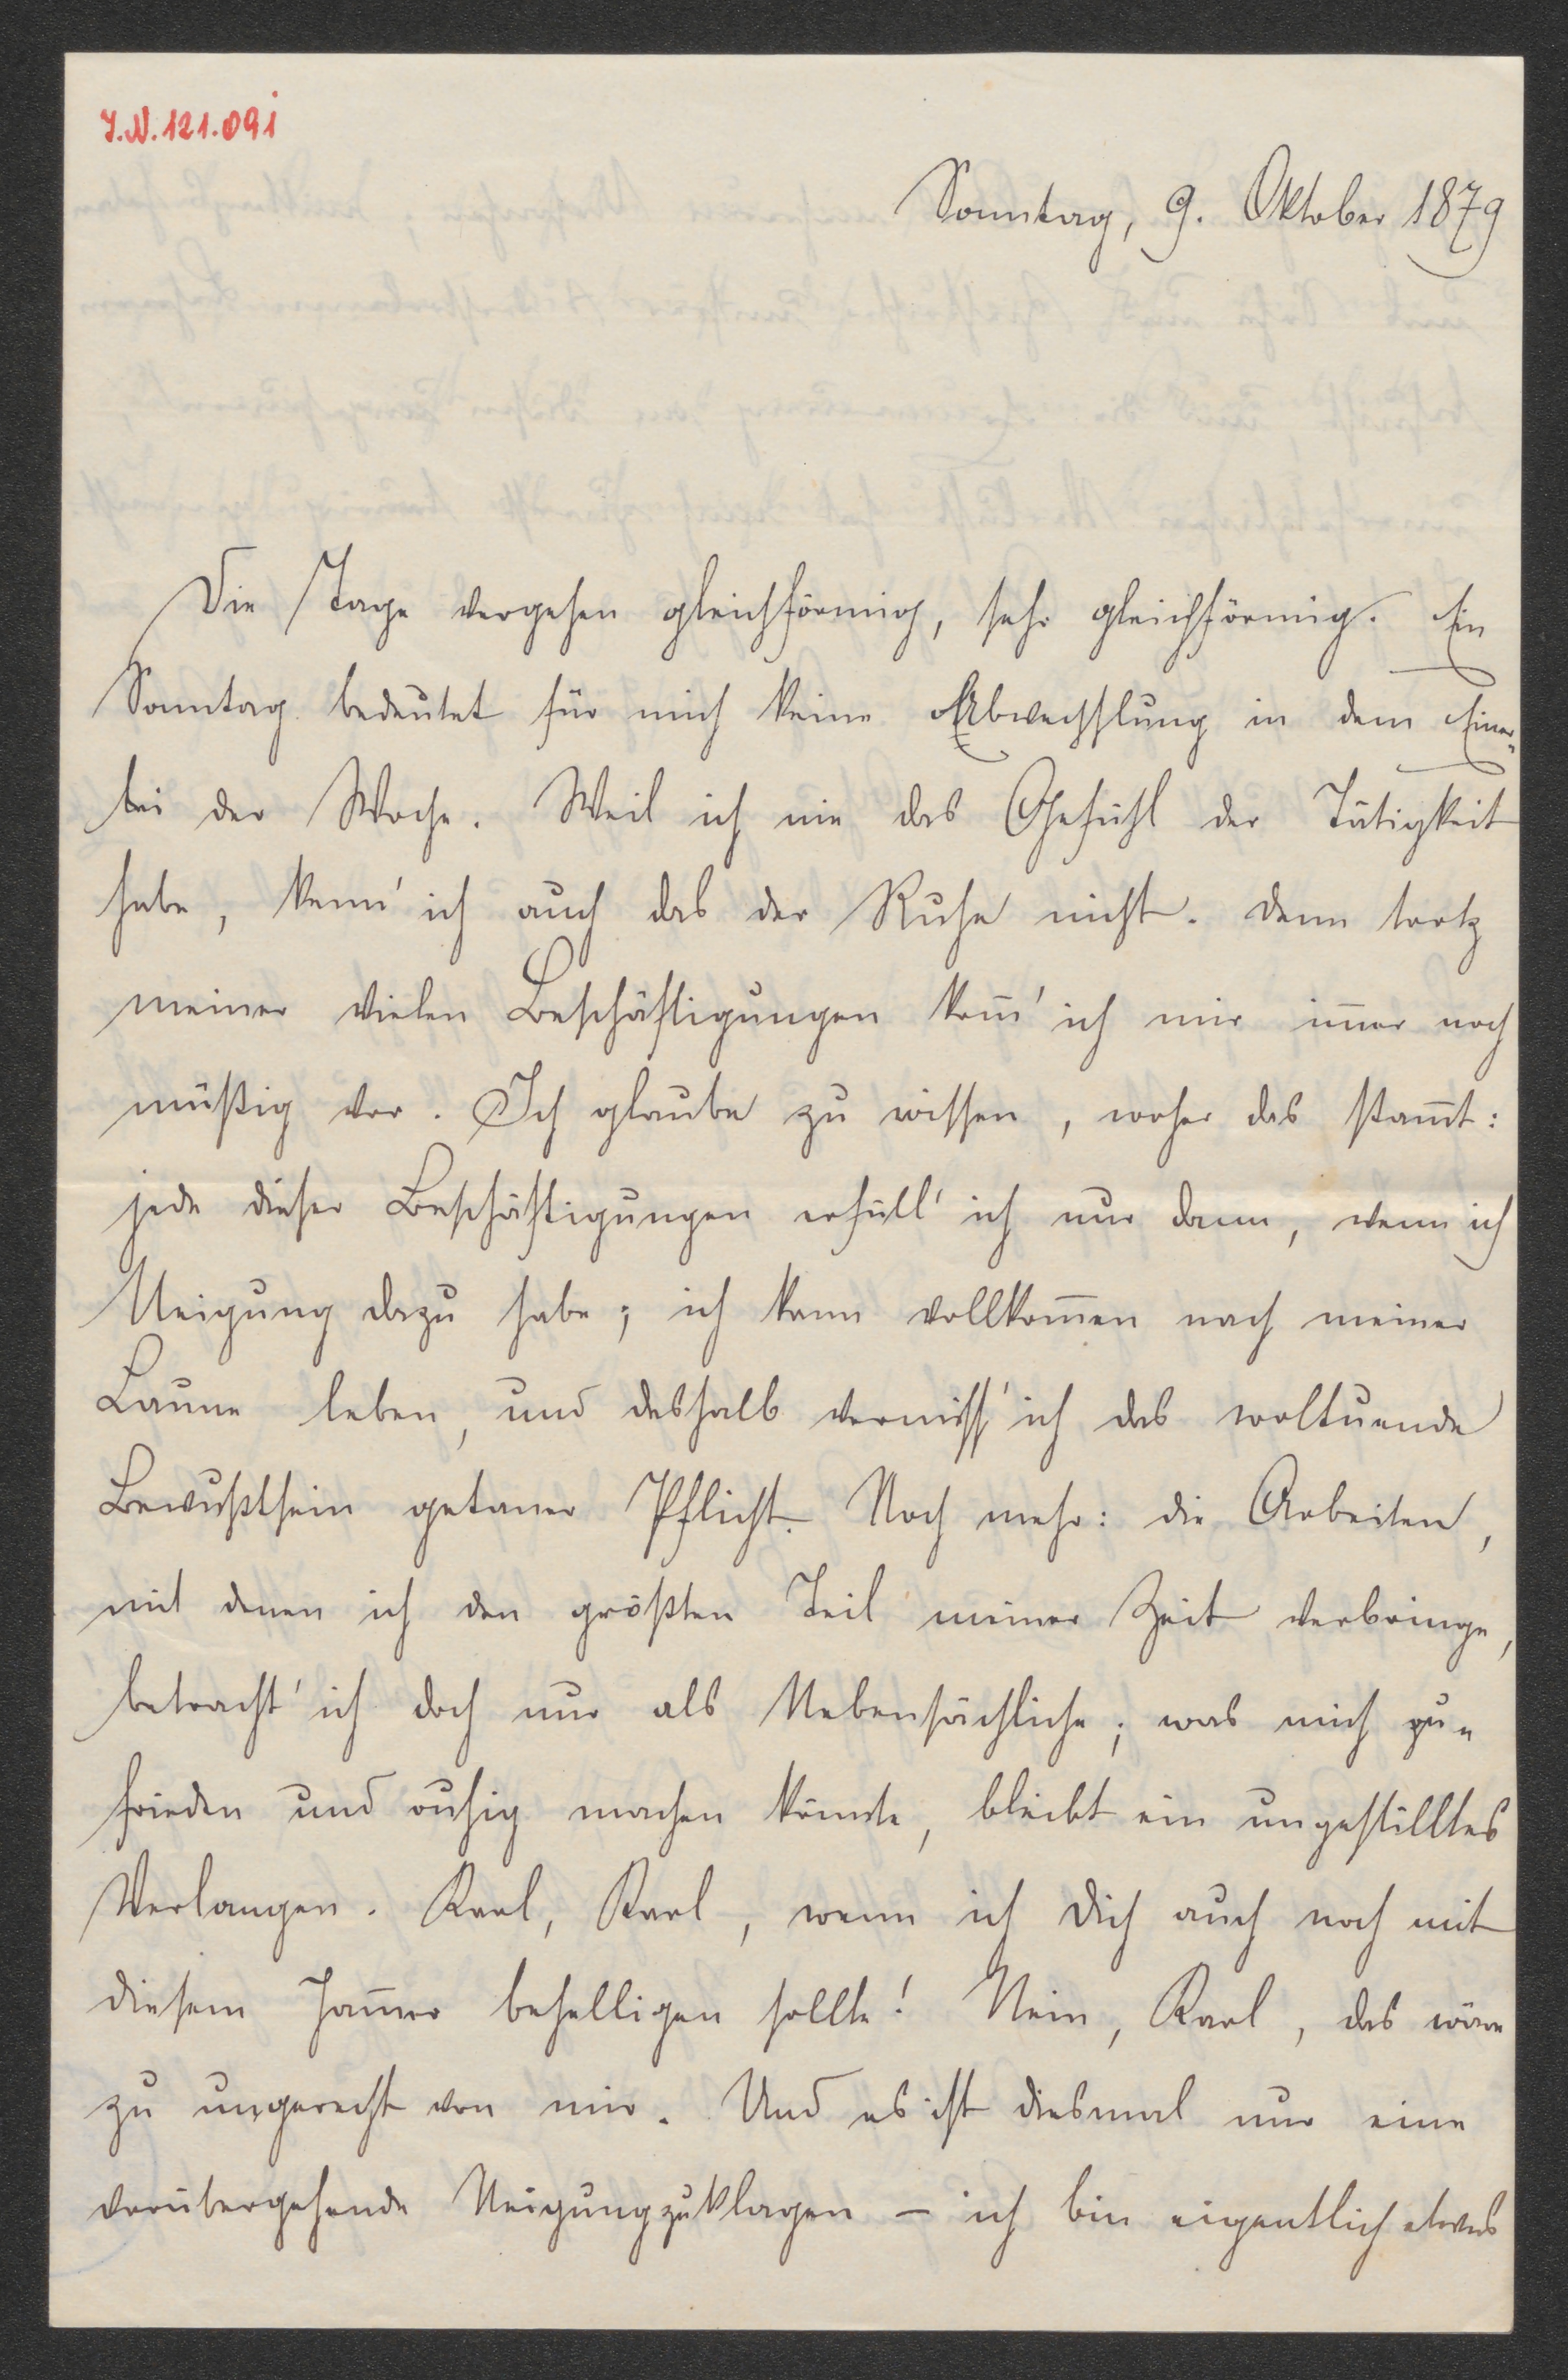 J.N. 121.091
Sonntag, 9. Oktober 1879
Die Tage vergehen gleichförmig, sehr gleichförmig. Ein
Sonntag bedeutet für mich keine Abwechslung in dem Einer-
lei der Woche. Weil ich nie das Gefühl der Tätigkeit
habe, kenn' ich auch das der Ruhe nicht. Denn trotz
meiner vielen Beschäftigungen kom̄' ich mir im̄er noch
müßig vor. Ich glaube zu wissen, woher das stam̄t:
jede dieser Beschäftigungen erfüll' ich nur dann, wenn ich
Neigung dazu habe; ich kann vollkom̄en nach meiner
Laune leben, und deshalb vermiss' ich das woltuende
Bewußtsein getaner Pflicht. Noch mehr: die Arbeiten,
mit denen ich den größten Teil meiner Zeit verbringe,
betracht' ich doch nur als Nebensächliche; was mich zu-
frieden und ruhig machen könnte, bleibt ein ungestilltes
Verlangen. Karl, Karl, wenn ich Dich auch noch mit
diesem Jam̄er behelligen sollte! Nein, Karl, das wäre
zu ungerecht von mir. Und es ist diesmal nur eine
vorübergehende Neigung zu klagen – ich bin eigentlich etwas